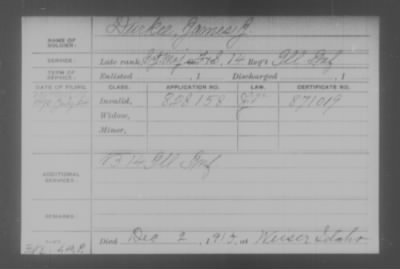 NAME OF SOLDIER: James
SERVICE: Late rank, 14 Reg't Ill Inf
TERM OF SERVICE: Enlisted , 1 Discharged , 1
DATE OF FILING. CLASS. APPLICATION NO. LAW. CERTIFICATE NO.
Invalid, 828158 871019
Widow,
Minor,
ADDITIONAL SERVICES: 14 Ill Inf
REMARKS:
Died Dec 2, 1915, at Weiser Idaho